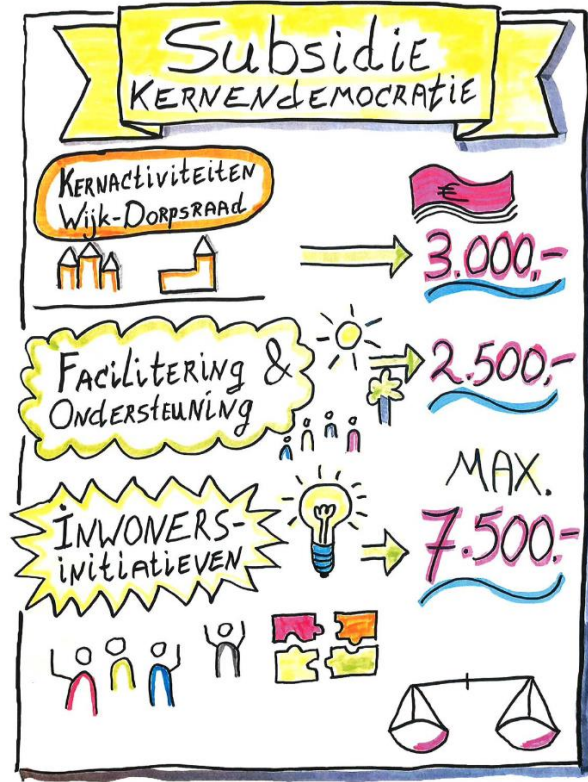 Subsidie
KERNENdEMOCRAtiE
KERNACtiviteiten
Wijk-DORPSRAAd
€
3.000,-
FACilitERiNg &
ONdERStEUNiNg
2.500,-
MAX.
7.500,-
iNWONERS-
iNitiAtiEVEN